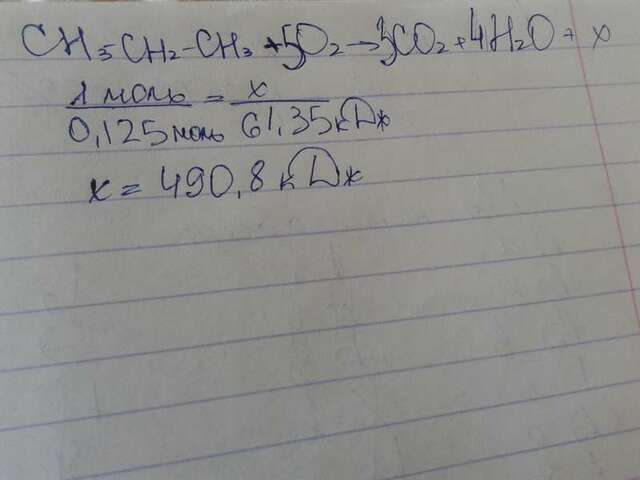 CH3CH2-CH3+5O2→3CO2+4H2O+x
1 моль = x
0,125 моль 61,35 кДж
x = 490,8 кДж